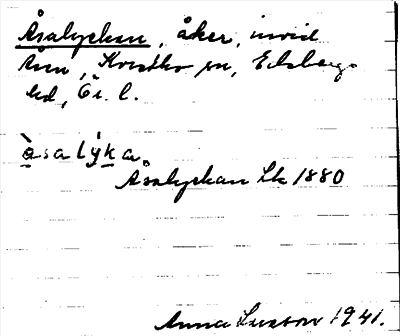 Åsalyckan, åker, invid
Åsen, Kvistbro sn, Edsbergs
hd, Ör. l.
àsa lýka.
Åsalyckan Lk 1880
Anna Larson 1941.